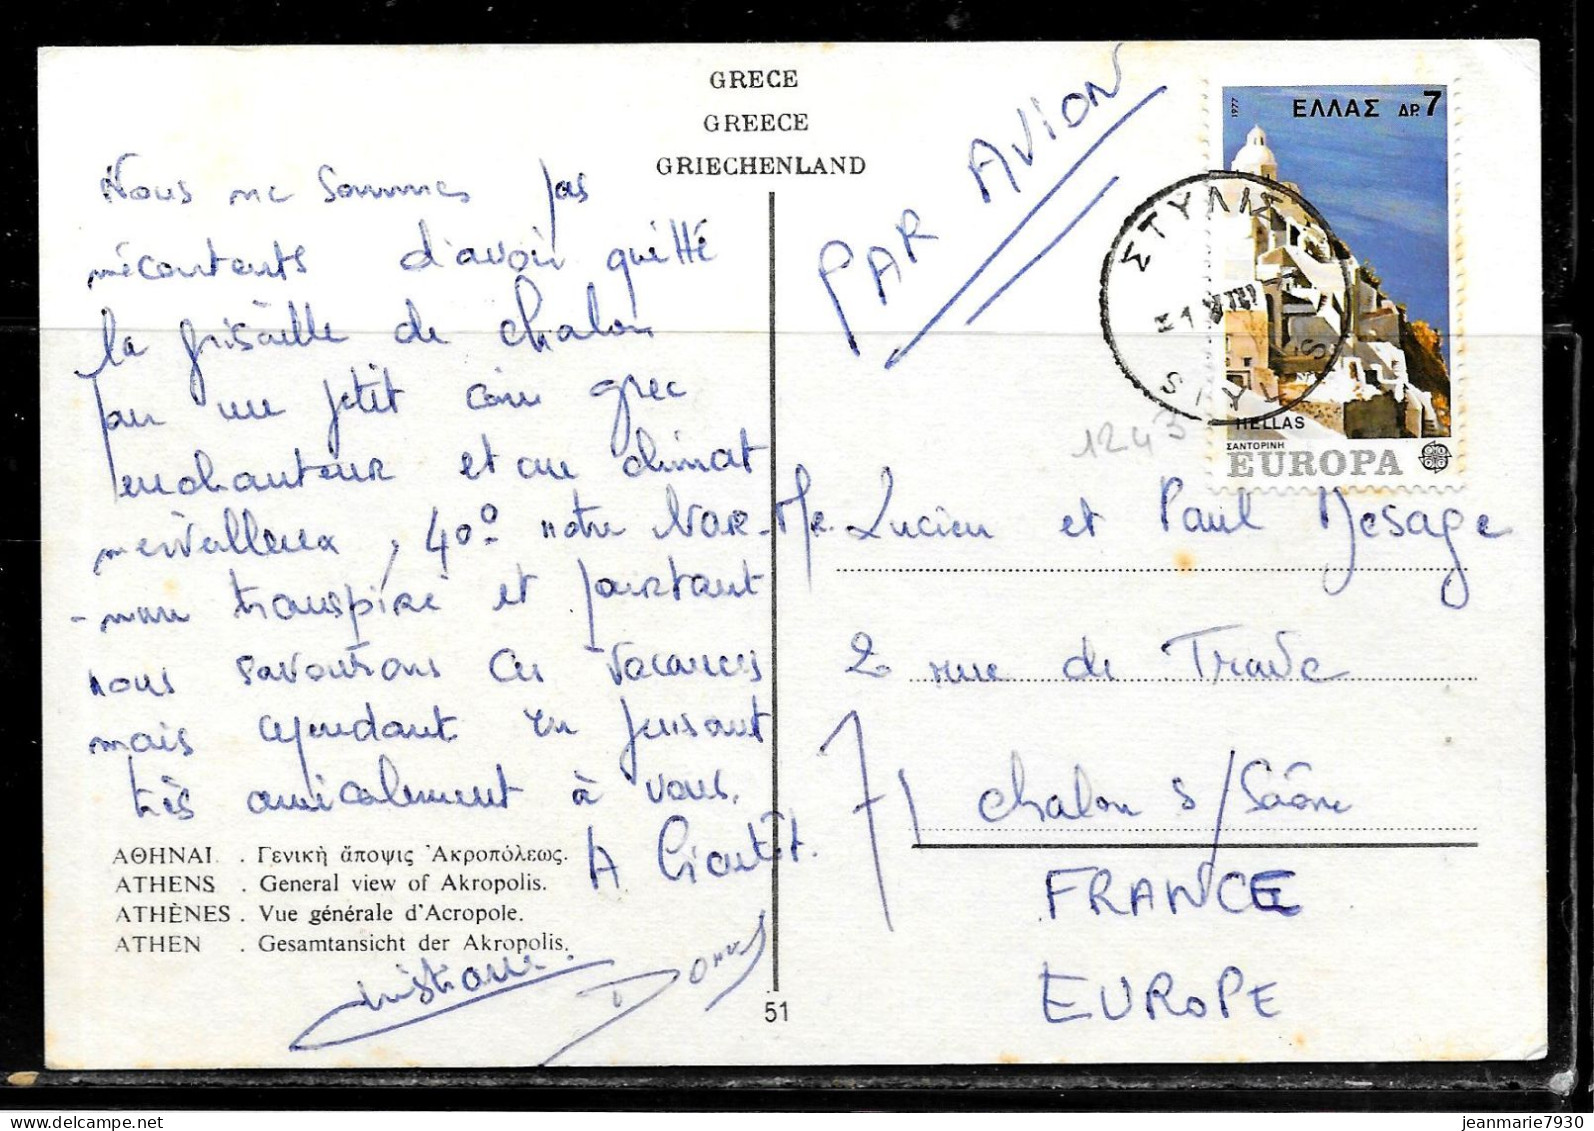 GRECE
GREECE
GRIECHENLAND
Nous ne sommes pas
mécontents d'avoir quitté
la grisaille de Chalon
par un petit coin grec
enchanteur et au climat
merveilleux, 40° notre Nor-
-man transpire et pourtant
nous savourons ces vacances
mais cependant en pensant
très amicalement à vous.
A bientôt.
ΑΘΗΝΑΙ . Γενική ἄποψις Ἀκροπόλεως.
ATHENS . General view of Akropolis.
ATHÈNES . Vue générale d'Acropole.
ATHEN . Gesamtansicht der Akropolis.
51
PAR AVION
1977
ΕΛΛΑΣ ΔΡ. 7
HELLAS
ΣΑΝΤΟΡΙΝΗ
EUROPA
ΣΤΥΛΙΣ
1243
Mr. Lucien et Paul Mesage
2 rue de Trave
71 Chalon s/Saône
FRANCE
EUROPE
jeanmarie7930